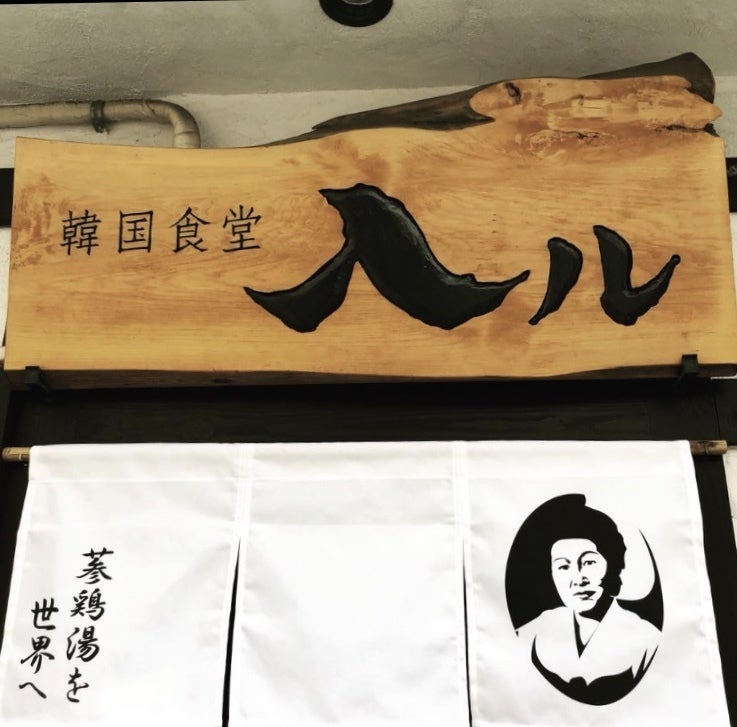 韓国食堂 入ル
蔘鶏湯を
世界へ